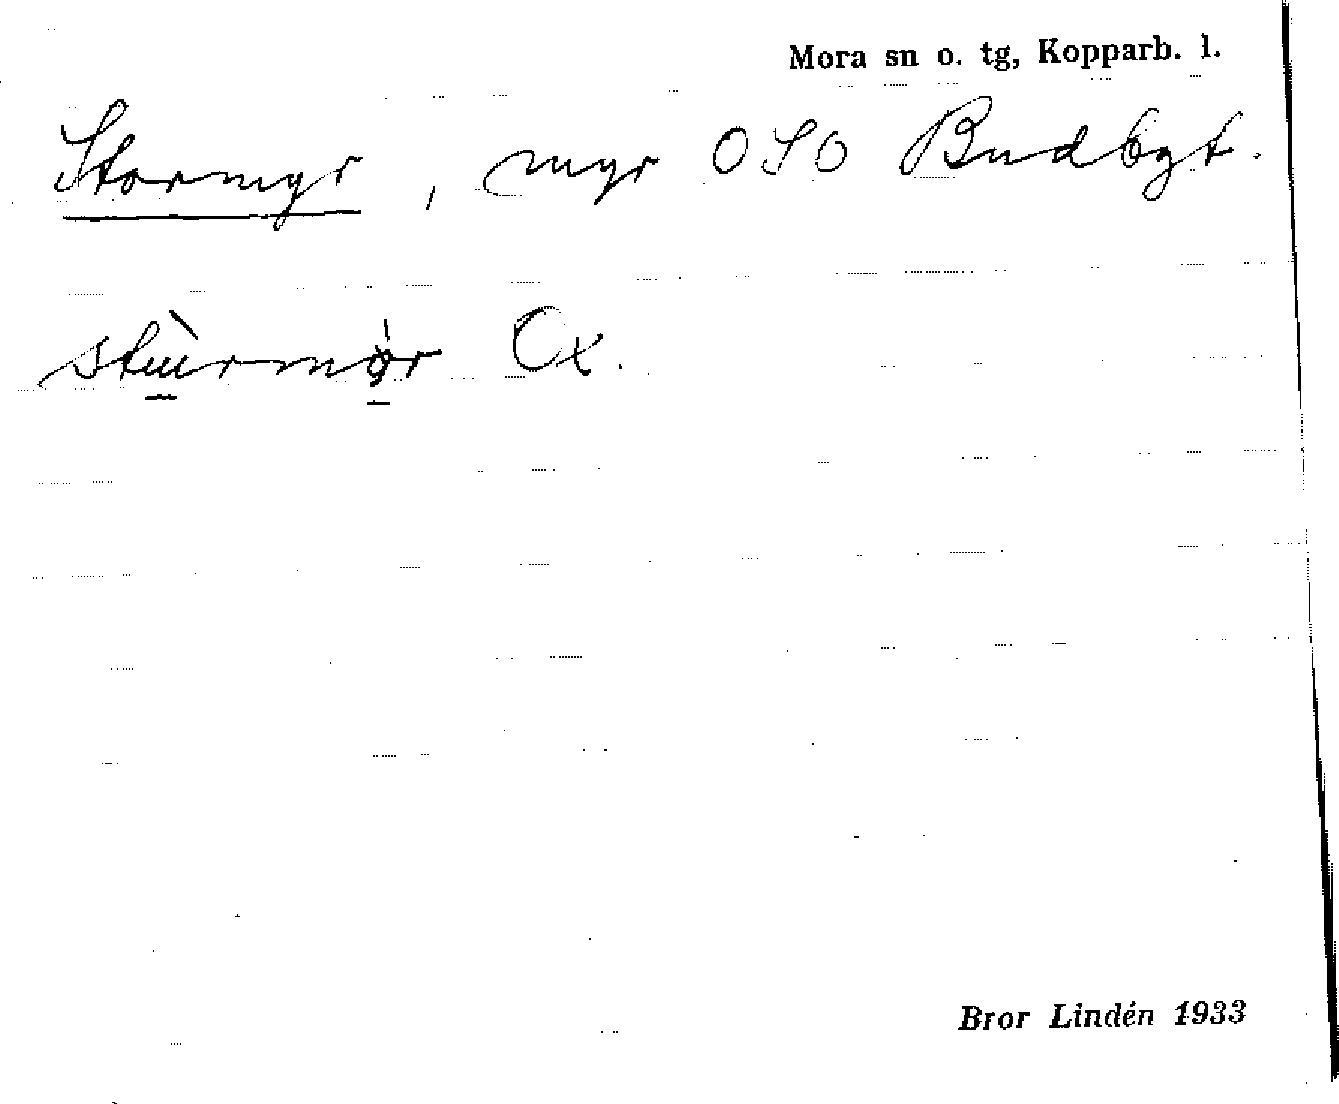 Mora sn o. tg, Kopparb. l.
Stormyr, myr OSO Budbgt.
Ox.
Bror Lindén 1933